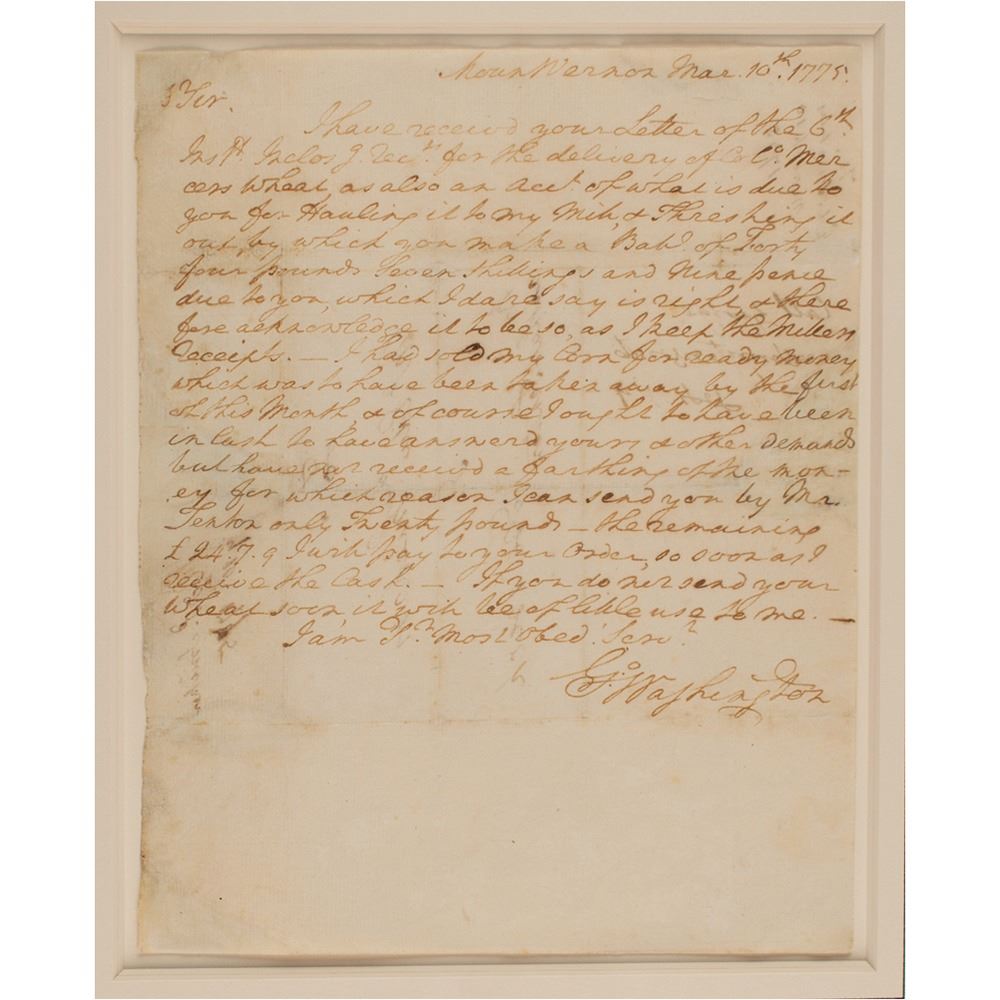 Mount Vernon Mar. 10th. 1775.
Sir.
I have receivd your Letter of the 6th.
Inst. Inclosg. Rects. for the delivery of Colo. Mer
cers Wheat, as also an acct. of what is due to
you for Hauling it to my Mill, & Threshing it
out, by which you make a Balle. of Forty
four pounds Seven Shillings and Nine pence
due to you, which I dare say is right, & there
fore acknowledge it to be so, as I keep the Millers
receipts. — I had sold my Corn for ready money
which was to have been taken away by the first
of this Month, & of course I ought to have been
in Cash to have answerd yours & other demands
but have not receivd a farthing of the mon-
ey for which reason I can send you by Mr.
only Twenty pounds — the remaining
£24.7.9 I will pay to your Order, so soon as I
receive the Cash. — If you do not send your
Wheat soon it will be of little use to me. —
I am Sr. Yr. Most Obed. Servt.
Go. Washington